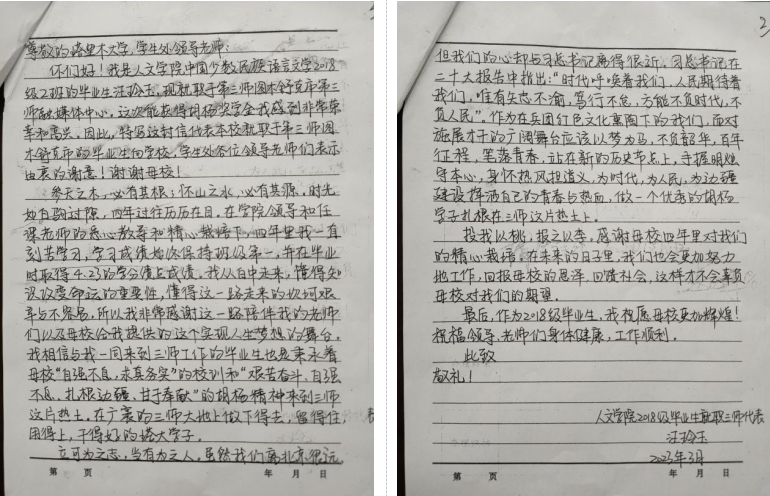 尊敬的塔里木大学,学生处领导老师:
你们好!我是人文学院中国少数民族语言文学2018
级2班的毕业生汪玲玉,现就职于第三师图木舒克市第三
师融媒体中心,这次能获得胡杨奖学金我感到非常荣
幸和高兴,因此,特写这封信代表本校就职于第三师图
木舒克市的毕业生向学校,学生处各位领导老师们表示
由衷的谢意!谢谢母校!
参天之木,必有其根;怀山之水,必有其源,时光
如白驹过隙,四年过往历历在目。在学院领导和任
课老师的悉心教导和精心栽培下,四年里我一直
刻苦学习,学习成绩始终保持班级第一,并在毕业
时取得4.23的学分绩点成绩,我从自中走来,懂得知
识改变命运的重要性,懂得这一路走来的坎坷艰
辛与不容易,所以我非常感谢这一路陪伴我的老师
们以及母校给我提供的这个实现人生梦想的舞台。
我相信与我一同来到三师工作的毕业生也是秉承着
母校“自强不息,求真务实”的校训和“艰苦奋斗,自强
不息,扎根边疆,甘于奉献”的胡杨精神来到三师
这片热土,在广袤的三师大地上做下得去,留得住,
用得上,干得好的塔大学子。
立可为之志,当有为之人。虽然我们离北京很远,
第 页 年 月 日
但我们的心却与习总书记离得很近,习总书记在
二十大报告中指出:“时代呼唤着我们,人民期待着
我们,唯有矢志不渝,笃行不怠,方能不负时代,不
负人民”。作为在兵团红色文化熏陶下的我们,面对
施展才干的广阔舞台应该以梦为马,不负韶华,百年
征程,笔落青春,让在新的历史节点上,手握明烛
守本心,身怀热风担道义,为时代,为人民,为边疆
建设挥洒自己的青春与热血,做一个优秀的胡杨
学子扎根在三师这片热土上。
投我以桃,报之以李。感谢母校四年里对我们
的精心栽培,在未来的日子里,我们也会更加努力
地工作,回报母校的恩泽,回馈社会,这样才不会辜负
母校对我们的期望。
最后,作为2018级毕业生,我祝愿母校更加辉煌!
祝福领导,老师们身体健康,工作顺利。
此致
敬礼!
人文学院2018级毕业生就职三师代表
汪玲玉
2023年3月
第 页 年 月 日